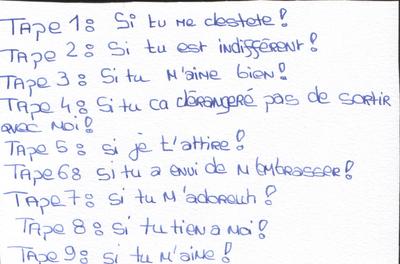 Tape 1: Si tu me destete!
Tape 2: Si tu est indifférent!
Tape 3: Si tu m'aine bien!
Tape 4: Si tu ca dérangeré pas de sortir
avec moi!
Tape 5: si je t'attire!
Tape 6: si tu a envi de m'embrasser!
Tape 7: si tu m'adoreuh!
Tape 8: si tu tien a moi!
Tape 9: si tu m'aine!